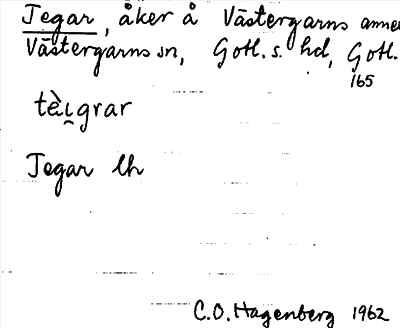 Tegar, åker å Västergarns annex
Västergarns sn, Gotl. s. hd, Gotl.
165
tè̀ı̯grar
Tegar lh
C.O. Hagenberg 1962